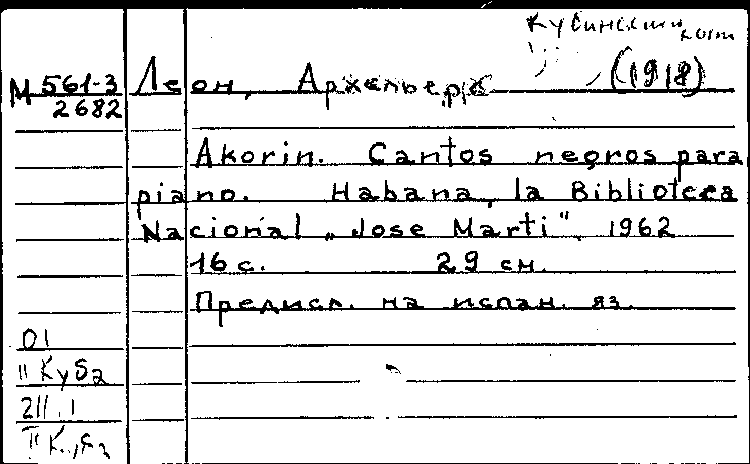 Кубинский
комп
М 561-3
2682
Леон, (1918)
Akorin. Cantos negros para
piano. Habana, la Biblioteca
Nacional „Jose Marti", 1962
16 с. 29 см.
Предисл. на испан. яз.
01
II Куба
211.1